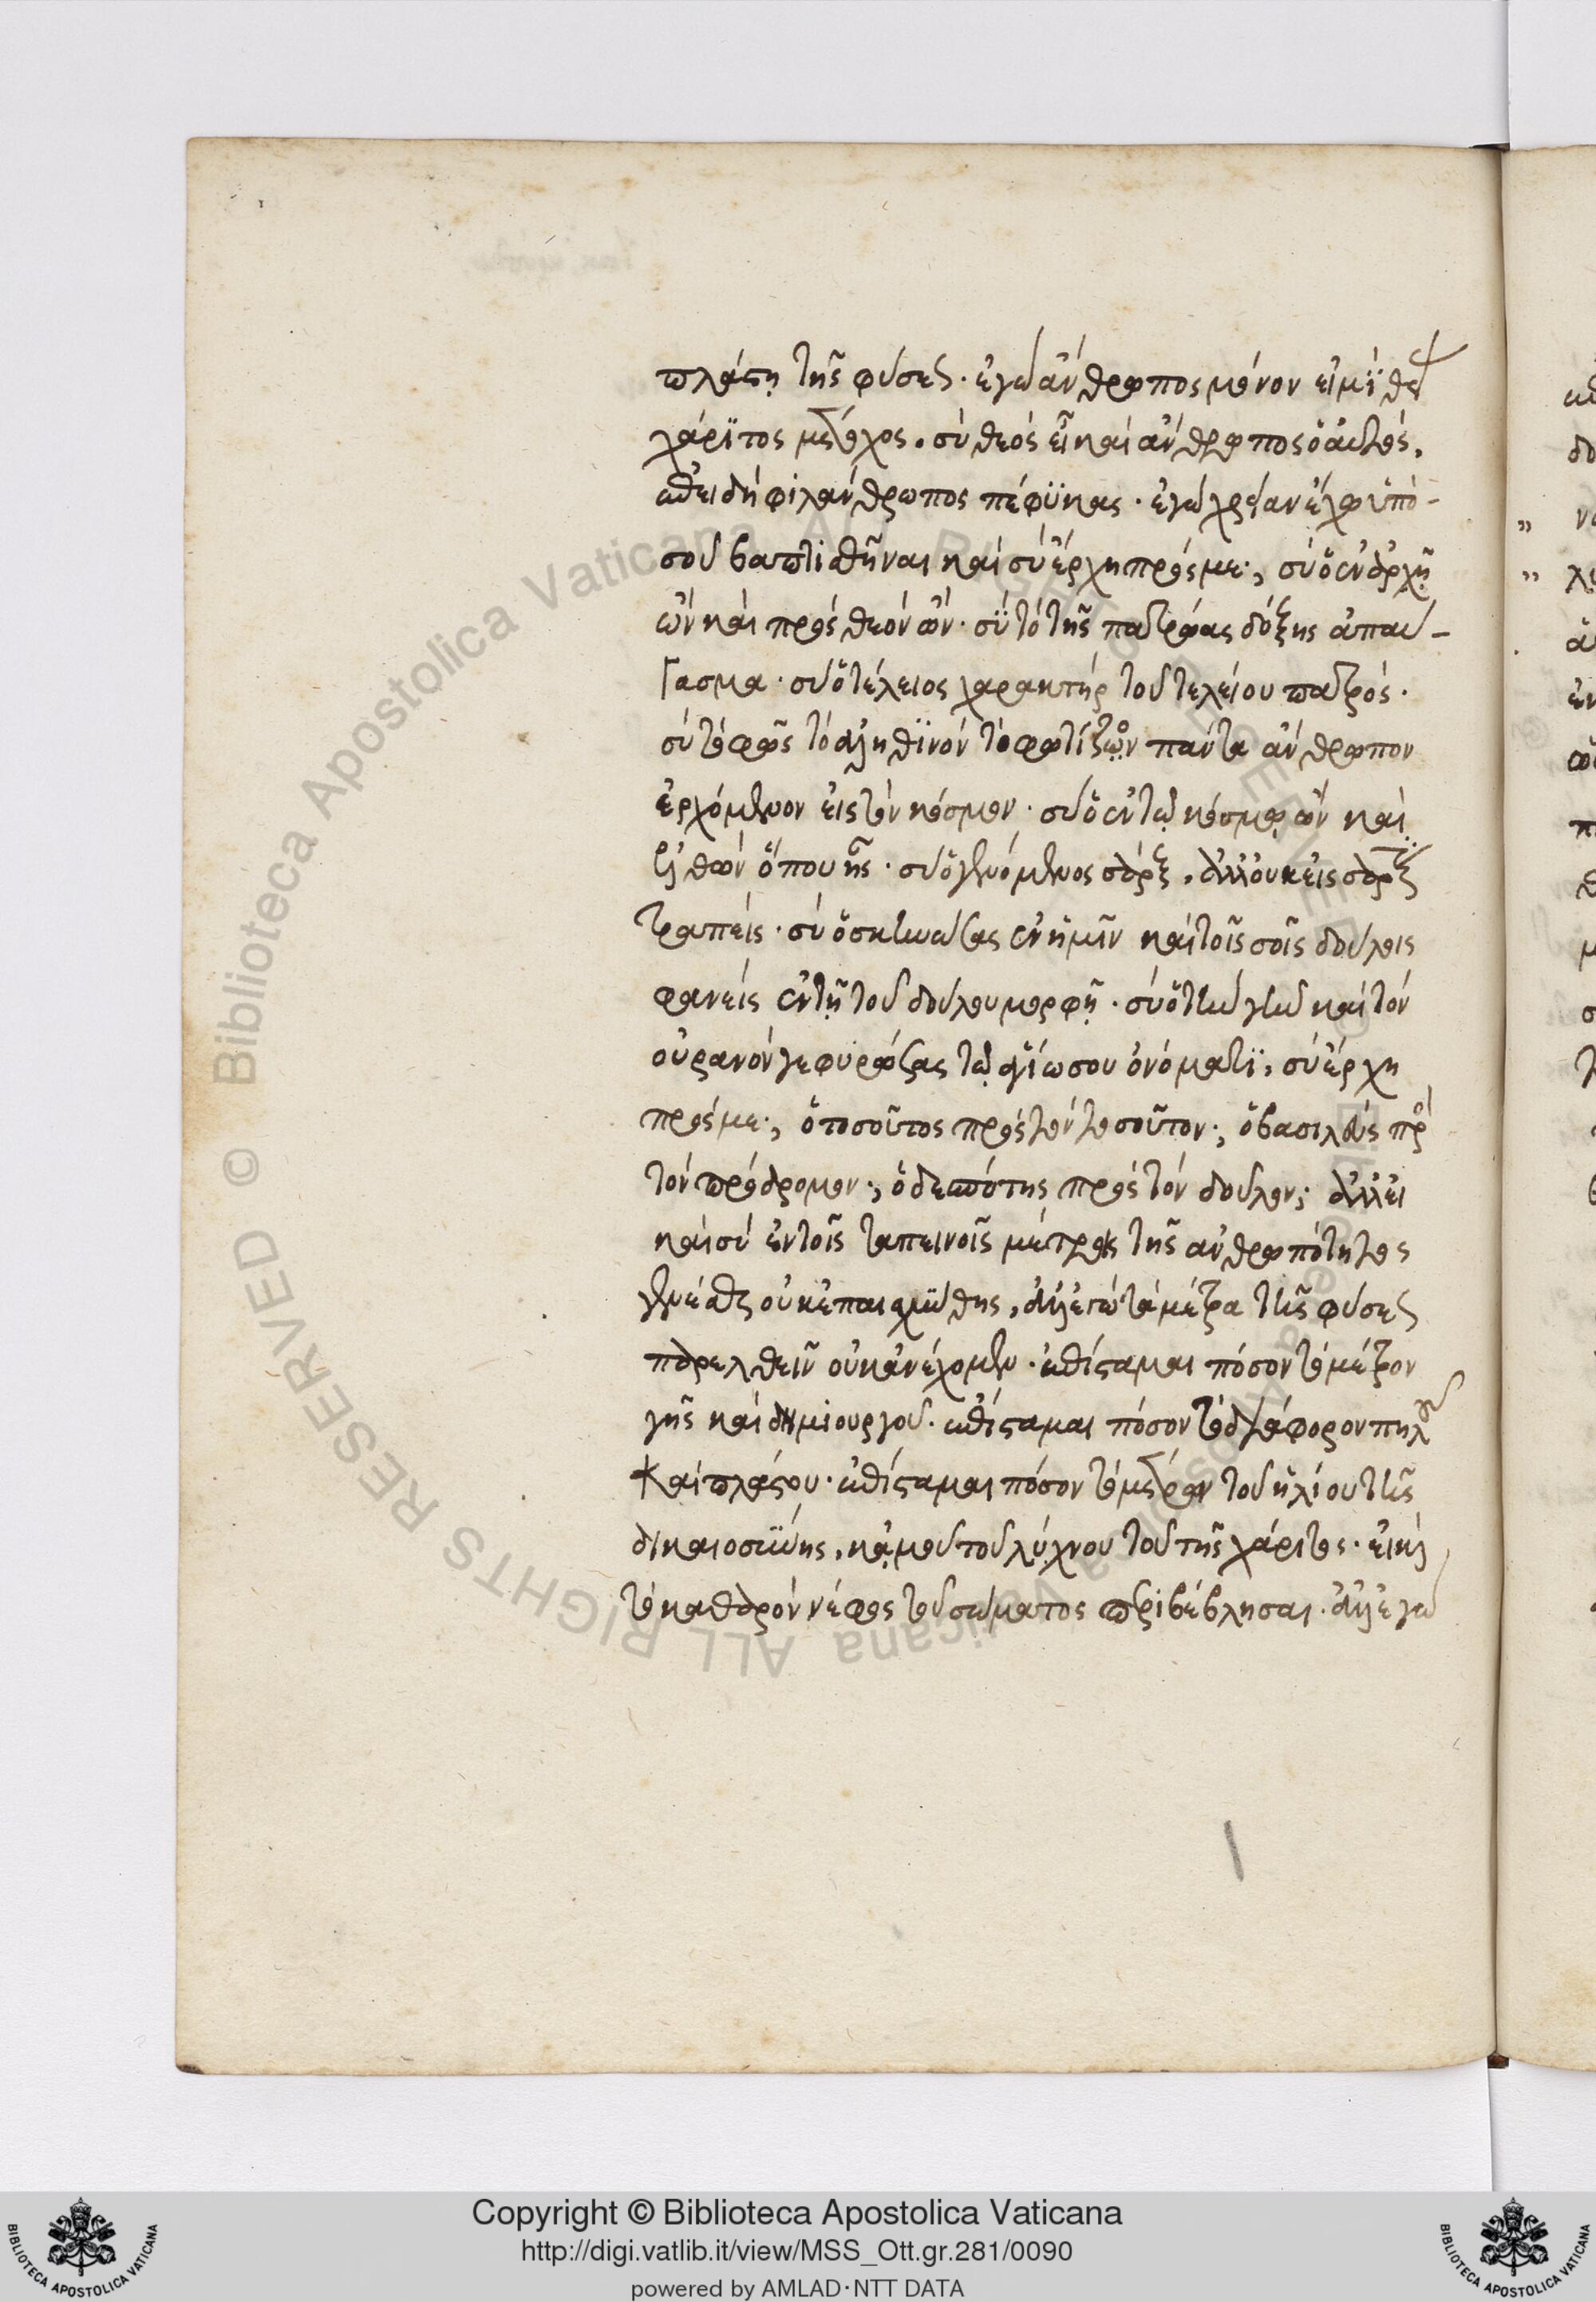 πλάστη τῆς φύσεως. ἐγὼ ἄνθρωπος μόνον εἰμὶ θείας
χάριτος μέτοχος. σὺ θεὸς εἶ καὶ ἄνθρωπος ὁ αὐτός,
ἐπειδὴ φιλάνθρωπος πέφϋκας. ἐγὼ χρείαν ἔχω ὑπό-
σου βαπτισθῆναι καὶ σὺ ἔρχη πρός με; σὺ ὁ ἐν ἀρχῇ
ὢν καὶ πρὸς θεὸν ὤν. σὺ τὸ τῆς πατρώας δόξης ἀπαύ-
γασμα. σὺ ὁ τέλειος χαρακτὴρ τοῦ τελείου πατρός.
σὺ τὸ φῶς τὸ ἀληθϊνὸν τὸ φωτίζων πάντα ἄνθρωπον
ἐρχόμενον εἰς τὸν κόσμον. σὺ ὁ ἐν τῷ κόσμῳ ὢν καὶ
ἐλθὼν ὅπου ἦς. σὺ ὁ γενόμενος σάρξ, ἀλλ' οὐκ εἰς σάρξ
τραπείς. σὺ ὁ σκηνώσας ἐν ἡμῖν καὶ τοῖς σοῖς δούλοις
φανεὶς ἐν τῇ τοῦ δούλου μορφῇ. σὺ ὁ τὴν γῆν καὶ τὸν
οὐρανὸν γεφυρώσας τῷ ἁγίω σου ὀνόματϊ, σὺ ἔρχη
πρός με; ὁ τοσοῦτος πρὸς τὸν τοσοῦτον; ὁ βασιλεὺς πρὸς
τὸν πρόδρομον; ὁ δεσπότης πρὸς τὸν δοῦλον; ἀλλ' εἰ
καὶ σὺ ἐν τοῖς ταπεινοῖς μέτροις τῆς ἀνθρωπότητος
γενέσθαι οὐκ ἐπαισχύνθης, ἀλλ' ἐγὼ τὰ μέτρα τῆς φύσεως
παρελθεῖν οὐκ ἀνέχομεν. ἐπίσταμαι πόσον τὸ μέτρον
γῆς καὶ δημιουργοῦ. ἐπίσταμαι πόσον τὸ διάφορον πηλοῦ
καὶ πλάστου. ἐπίσταμαι πόσον τὸ μέτρον τοῦ ἡλίου τῆς
δικαιοσύνης, κἀμοῦ τοῦ λύχνου τοῦ τῆς χάριτος. εἰ καὶ
τὸ καθαρὸν νέφος τοῦ σώματος περιβέβλησαι. ἀλλ' ἐγὼ
Copyright © Biblioteca Apostolica Vaticana
http://digi.vatlib.it/view/MSS_Ott.gr.281/0090
powered by AMLAD·NTT DATA